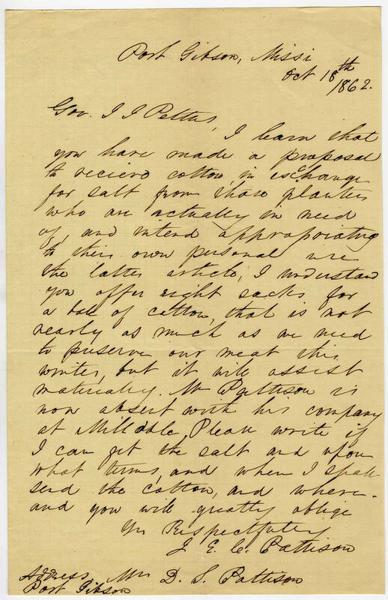 Port Gibson, Missi
Oct 18th
1862.
Gov. J J Pettus,
I learn that
you have made a proposal
to recieve cotton, in exchange
for salt from those planters
who are actually in need
of, and intend appropriating
to their own personal use
the latter article, I understand
you offer eight sacks for
a bale of cotton, that is not
nearly as much as we need
to preserve our meat this
winter, but it will assist
materially. Mr Pattison is
now absent with his company
at
Please write if
I can get the salt and upon
what terms, and when I shall
send the cotton, and where
and you will greatly oblige
Yrs Respectfully
J. E. C. Pattison
Address, Mrs D. S. Pattison
Port Gibson